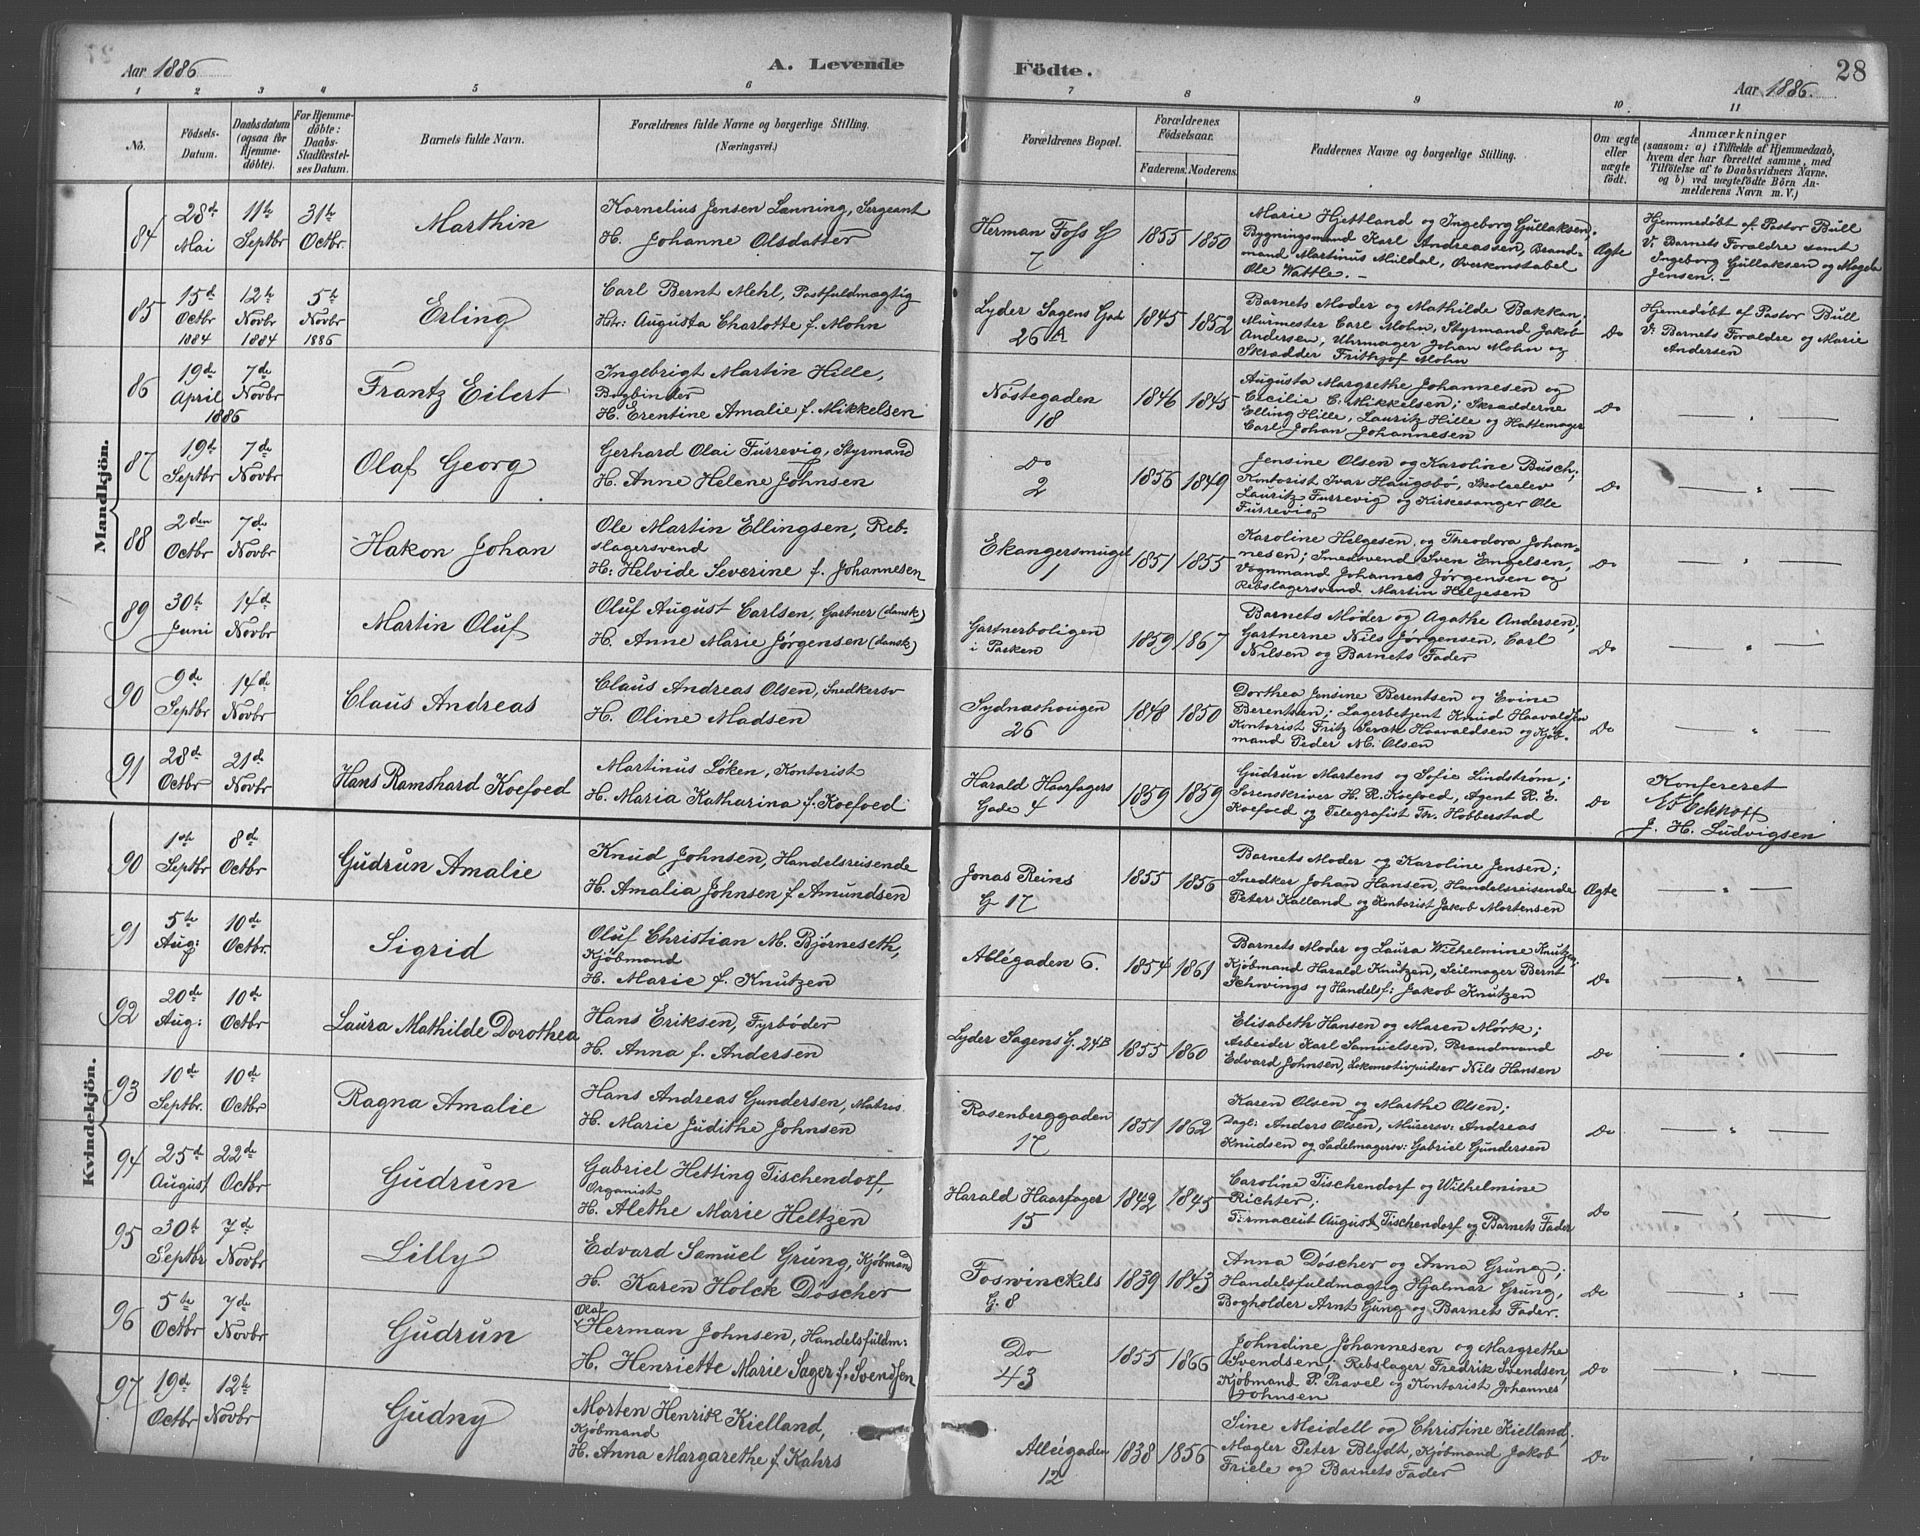 Aar 1886
A. Levende Födte.
Aar 1886.
28
1 2 3 4 5 6 7 8 9 10 11
No.
Födsels-Datum.
Daabsdatum (ogsaa for Hjemmedöbte).
For Hjemmedöbte: Daabs-Stadfæstelses Datum.
Barnets fulde Navn.
Forældrenes fulde Navne og borgerlige Stilling. (Næringsvei.)
Forældrenes Bopæl.
Forældrenes Födselsaar.
Faderens. Moderens.
Faddernes Navne og borgerlige Stilling.
Om ægte eller uægte födt.
Anmærkninger
(saasom: a) i Tilfælde af Hjemmedaab, hvem der har forrettet samme, med Tilföielse af to Daabsvidners Navne. og b) ved uægtefödte Börn Anmelderens Navn m.V.)
Mandkjön.
84
28d Mai
11te Septbr
31te Octbr.
Marthin
Kornelius Jensen Lænning, Sergeant
H. Johanne Olsdatter
Herman Foss G
7
1855 1850
Marie Hjettland og Ingeborg Gullaksen,
Bygningsmand Karl Andreassen, Brand-
mand Martinus Muldal, Overkonstabel
Ole Wattle. -
Ægte
Hjemmedøbt af Pastor Bull
V. Barnets Forældre samt
Ingeborg Gullaksen og Magda
Jensen. -
85
15d Octbr 1884
12te Novbr 1884
5te Novbr 1886
Erling
Carl Bernt Mehl, Postfuldmægtig
Hstr: Augusta Charlotte f. Mohn
Lyder Sagens Gade
26 A
1845 1852
Barnets Moder og Mathilde Bakkan,
Murmester Carl Mohn, Styrmand Jakob
Andersen, Uhrmager Johan Mohn og
Skrædder Frithjof Mohn
Do
Hjemedøbt af Pastor Bull
V. Barnets Forældre og Marie
Andersen
86
19de April 1886
7de Novbr
Frantz Eilert
Ingebrigt Martin Hille,
Bogbinder
H. Erentine Amalie f. Mikkelsen
Nøstegaden
18
1846 1845
Augusta Margrethe Johannesen og
Cecilie C. Mikkelsen; Skrædderne
Elling Hille, Lauritz Hille og Hattemager
Carl Johan Johannesen
Do
— " —
87
19de Septbr
7de Novbr
Olaf Georg
Gerhard Olai Furrevig, Styrmand
H. Anne Helene Johnsen
Do
2
1856 1849
Jensine Olsen og Karoline Busch,
Kontorist Ivar Haugsbø, Skoleelev
Lauritz Furrevig og Kirkesanger Ole
Furrevig
Do
— " —
88
2den Octbr
7de Novbr
Hakon Johan
Ole Martin Ellingsen, Reb-
slagersvend
H: Helvide Severine f. Johannesen
Ekangersmuget
1
1851 1855
Karoline Helgesen og Theodora Johan-
nesen; Smedsvend Sven Engelsen,
Vognmand Johannes Jørgensen og
Rebslagersvend Martin Helgesen
Do
— " —
89
30te Juni
14d Novbr
Martin Oluf
Oluf August Carlsen, Gartner (dansk)
H. Anne Marie Jørgensen (dansk)
Gartnerboligen
i Parken
1859 1867
Barnets Moder og Agathe Andersen,
Gartnerne Nils Jørgensen, Carl
Nilsen og Barnets Fader
Do
— " —
90
9de Septbr
14de Novbr
Claus Andreas
Claus Andreas Olsen, Snedkersv
H. Oline Madsen
Sydnæshougen
26
1848 1850
Dorthea Jensine Berentsen og Evine
Berentsen; Lagerbetjent Knud Haavaldsen
Kontorist Fritz Serck Haavaldsen og Kjøb-
mand Peder M. Olsen
Do
— " —
91
28de Octbr
21d Novbr
Hans Ramshard Koefoed
Martinus Løken, Kontorist
H. Maria Katharina f. Koefoed
Harald Haarfagers
Gade 4
1859 1859
Gudrun Martens og Sofie Lindstrøm;
Sorenskriver H. R. Koefoed, Agent R. E.
Koefoed og Telegrafist Th. Hobberstad
Do
Konfereret
J. H. Ludvigsen
Kvindekjön.
90
1ste Septbr
8de Octbr
Gudrun Amalie
Knud Johnsen, Handelsreisende
H. Amalia Johnsen f. Amundsen
Jonas Reins
G 17
1855 1856
Barnets Moder og Karoline Jensen;
Snedker Johan Hansen, Handelsreisende
Peter Kalland og Kontorist Jakob Mortensen
Ægte
— " —
91
5te Aug:
10de Octbr.
Sigrid
Oluf Christian M. Bjørneseth,
Kjøbmand
H. Marie f. Knutzen
Allégaden 6.
1854 1861
Barnets Moder og Laura Wilhelmine Knutzen;
Kjøbmand Harald Knutzen, Seilmager Bernt
Schwings og Handelsf: Jakob Knutzen
Do
— " —
92
20de Aug:
10de Octbr
Laura Mathilde Dorothea
Hans Eriksen, Fyrbøder
H. Anna f. Andersen
Lyder Sagens G. 24B
1855 1860
Elisabeth Hansen og Maren Mørk;
Arbeider Karl Samuelsen, Brandmand
Edvard Johnsen, Lokomotivpudser Nils Hansen
Do
— " —
93
10de Septbr.
10de Octbr
Ragna Amalie
Hans Andreas Gundersen, Matros
H. Marie Judithe Johnsen
Rosenberggaden
17
1851 1862
Karen Olsen og Marthe Olsen;
Dagl: Anders Olsen, Murersv: Andreas
Knudsen og Sadelmagersv: Gabriel Gundersen
Do
— " —
94
25d August
22de Octbr
Gudrun
Gabriel Hetting Tischendorf,
Organist
H. Alethe Marie Heltzen
Harald Haarfager
15
1842 1845
Caroline Tischendorf og Wilhelmine
Richter;
Firmaceut August Tischendorf og Barnets Fader
Do
— " —
95
30t Septbr
7de Novbr
Lilly
Edvard Samuel Grung, Kjøbmand
H. Karen Holck Døscher
Foswinckels
G. 8
1839 1843
Anna Døscher og Anna Grung;
Handelsfuldmægtig Hjalmar Grung,
Bogholder Arnt Gung og Barnets Fader.
Do
— " —
96
5te Octbr
7de Novbr
Gudrun
Olaf
Herman Johnsen, Handelsfuldm:
H. Henriette Marie Sager f. Svendsen
Do
43
1855 1866
Johndine Johannesen og Margrethe
Svendsen, Rebslager Fredrik Svendsen,
Kjøbmand P. Pravel og Kontorist Johannes
Johnsen
Do
— " —
97
19d Octbr
12te Novbr
Gudny
Morten Henrik Kielland,
Kjøbmand
H. Anna Margarethe f. Kahrs
Allégaden
12
1838 1856
Sine Meidell og Christine Kielland,
Mægler Peter Blydt, Kjøbmand Jakob
Friele og Barnets Fader
Do
— " —